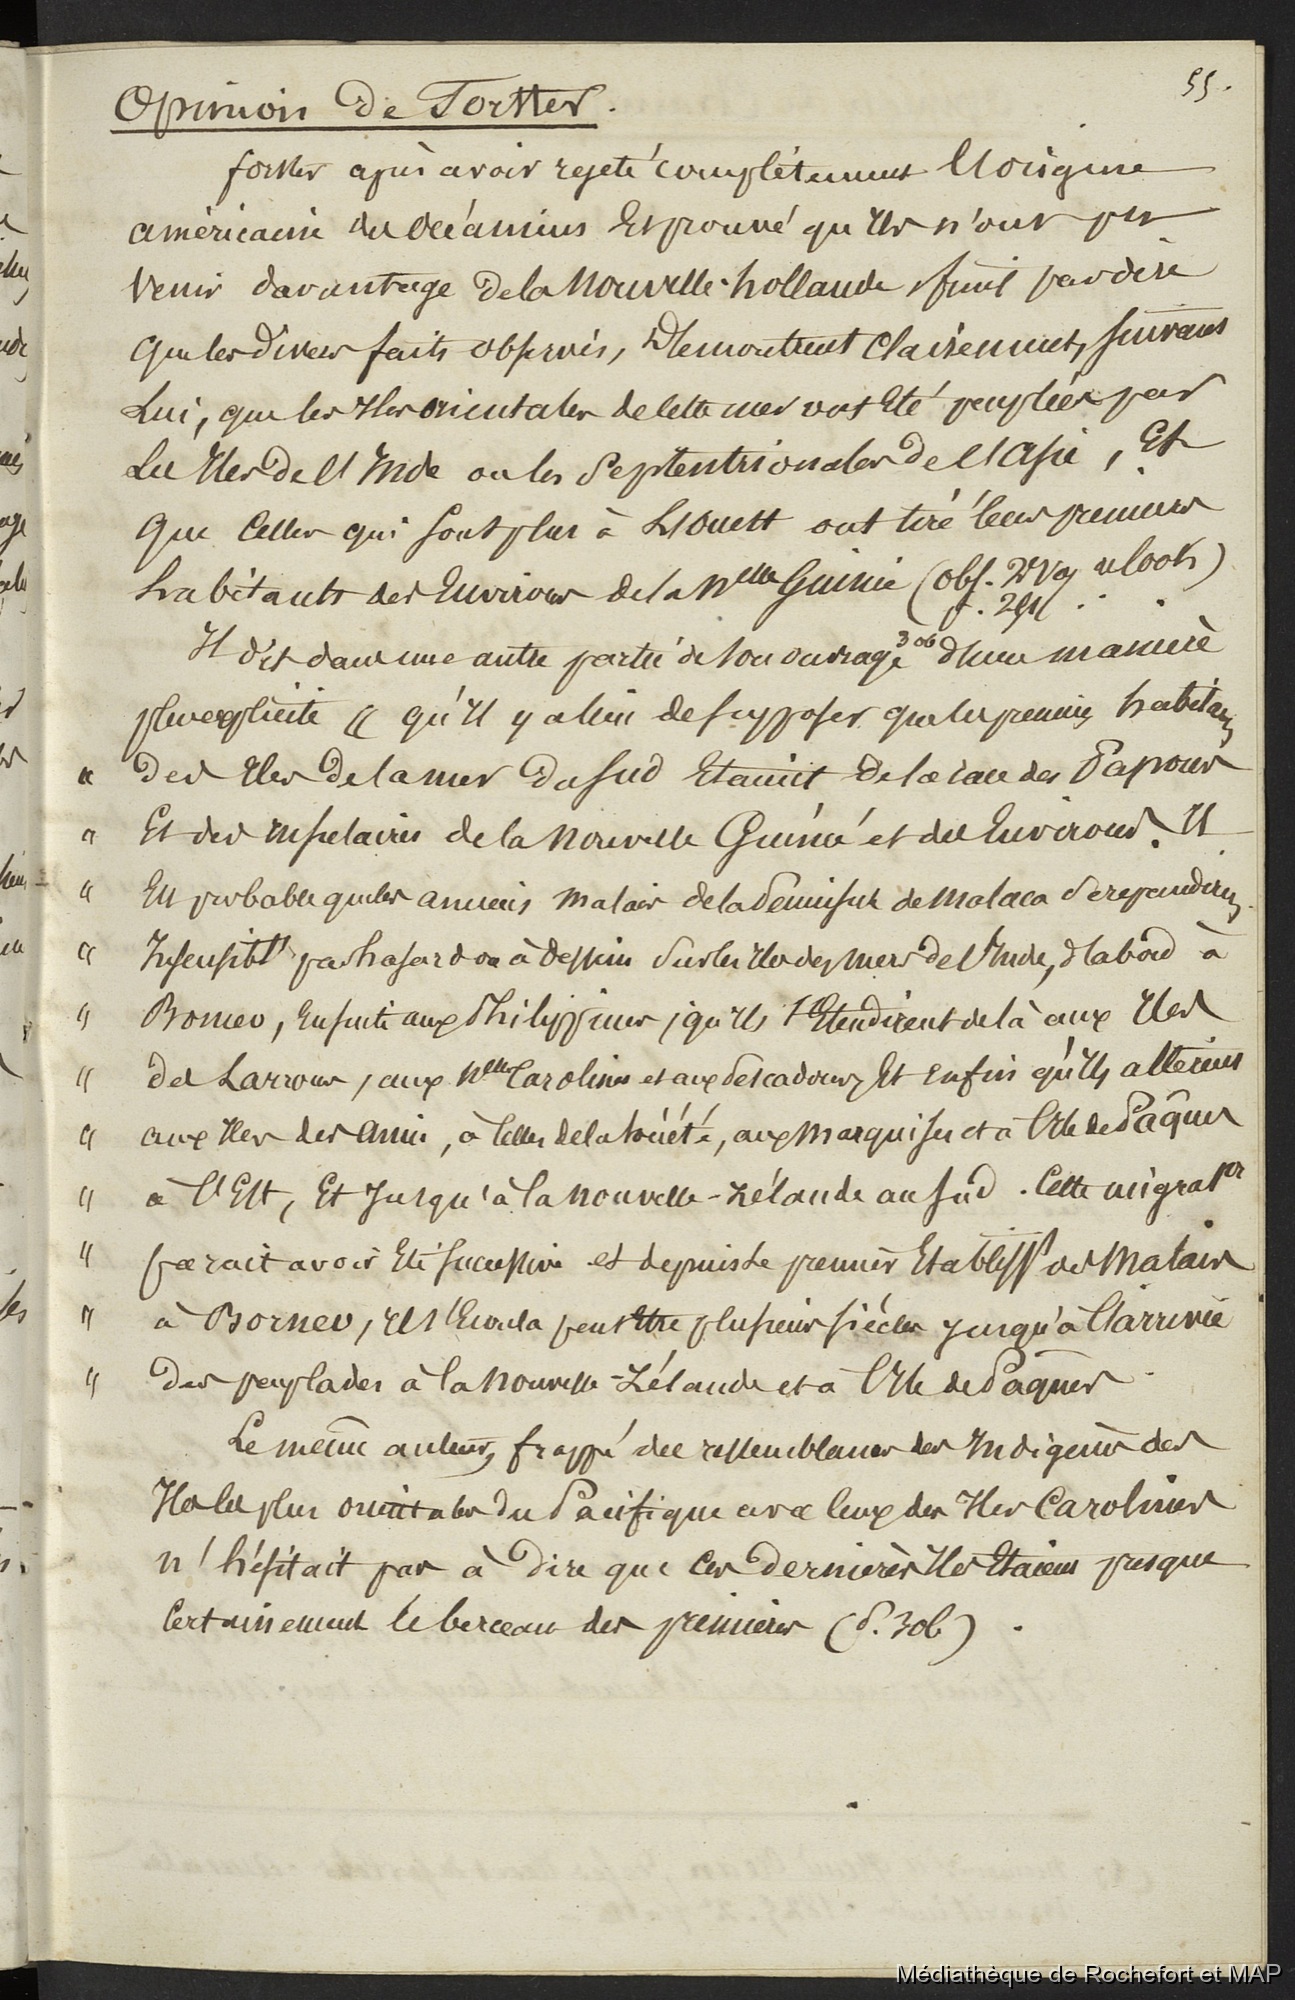 55.
Opinion de Forster.
forster après avoir rejeté complétement l'origine
américaine des océaniens Et prouvé qu'Ils n'ont pu
venir davantage de la Nouvelle-hollande, finit par dire
que les divers faits observés, Démontrent clairement, suivant
Lui, que les Iles orientales de cette mer ont Eté peuplées par
Les Iles de l'Inde ou les Septentrionales de l'Asie, Et
que Celles qui sont plus à L'ouest ont tiré leurs premiers
habitants des Environs de la Nelle Guinée (obs. 2d Voy de Cook)
p. 251
Il dit dans une autre partie de son ouvrage 306 d'une manière
plus explicite « qu'Il y a lieu de supposer que les premiers habitans
« Des Iles De la mer Du Sud Etaient de la race des Papous
« Et des Insulaires de la Nouvelle Guinée et des Environs. Il
« Est probable que les anciens Malais de la Péninsule de Malaca se répandirent
« Insensiblt par hasard ou à dessein sur les Iles des Mers de l'Inde, d'abord à
« Borneo, Ensuite aux Philippines, qu'Ils s'Etendirent de là aux Iles
« des Larrons, aux Nelles Carolines et aux Pescadores, Et enfin qu'Ils atterirent
« aux Iles des Amis, à Celles de la Société, aux Marquises et à l'Ile de Pâques
« à l'Est, Et Jusqu'à la Nouvelle-Zélande au Sud. Cette migraton
« parait avoir Eté successive et depuis le premier Etablisst des Malais
« à Borneo, Il s'Ecoula peut Etre plusieurs siécles Jusqu'à l'arrivée
« Des peuplades à la Nouvelle-Zélande et à l'Ile de Pâques.
Le même auteur, frappé des ressemblances des Indigènes des
Iles les plus orientales du Pacifique avec ceux des Iles Carolines
n'hésitait pas à Dire que Ces Dernières Iles Etaient presque
Certainement le berceau des premières (P. 306).
Médiathèque de Rochefort et MAP